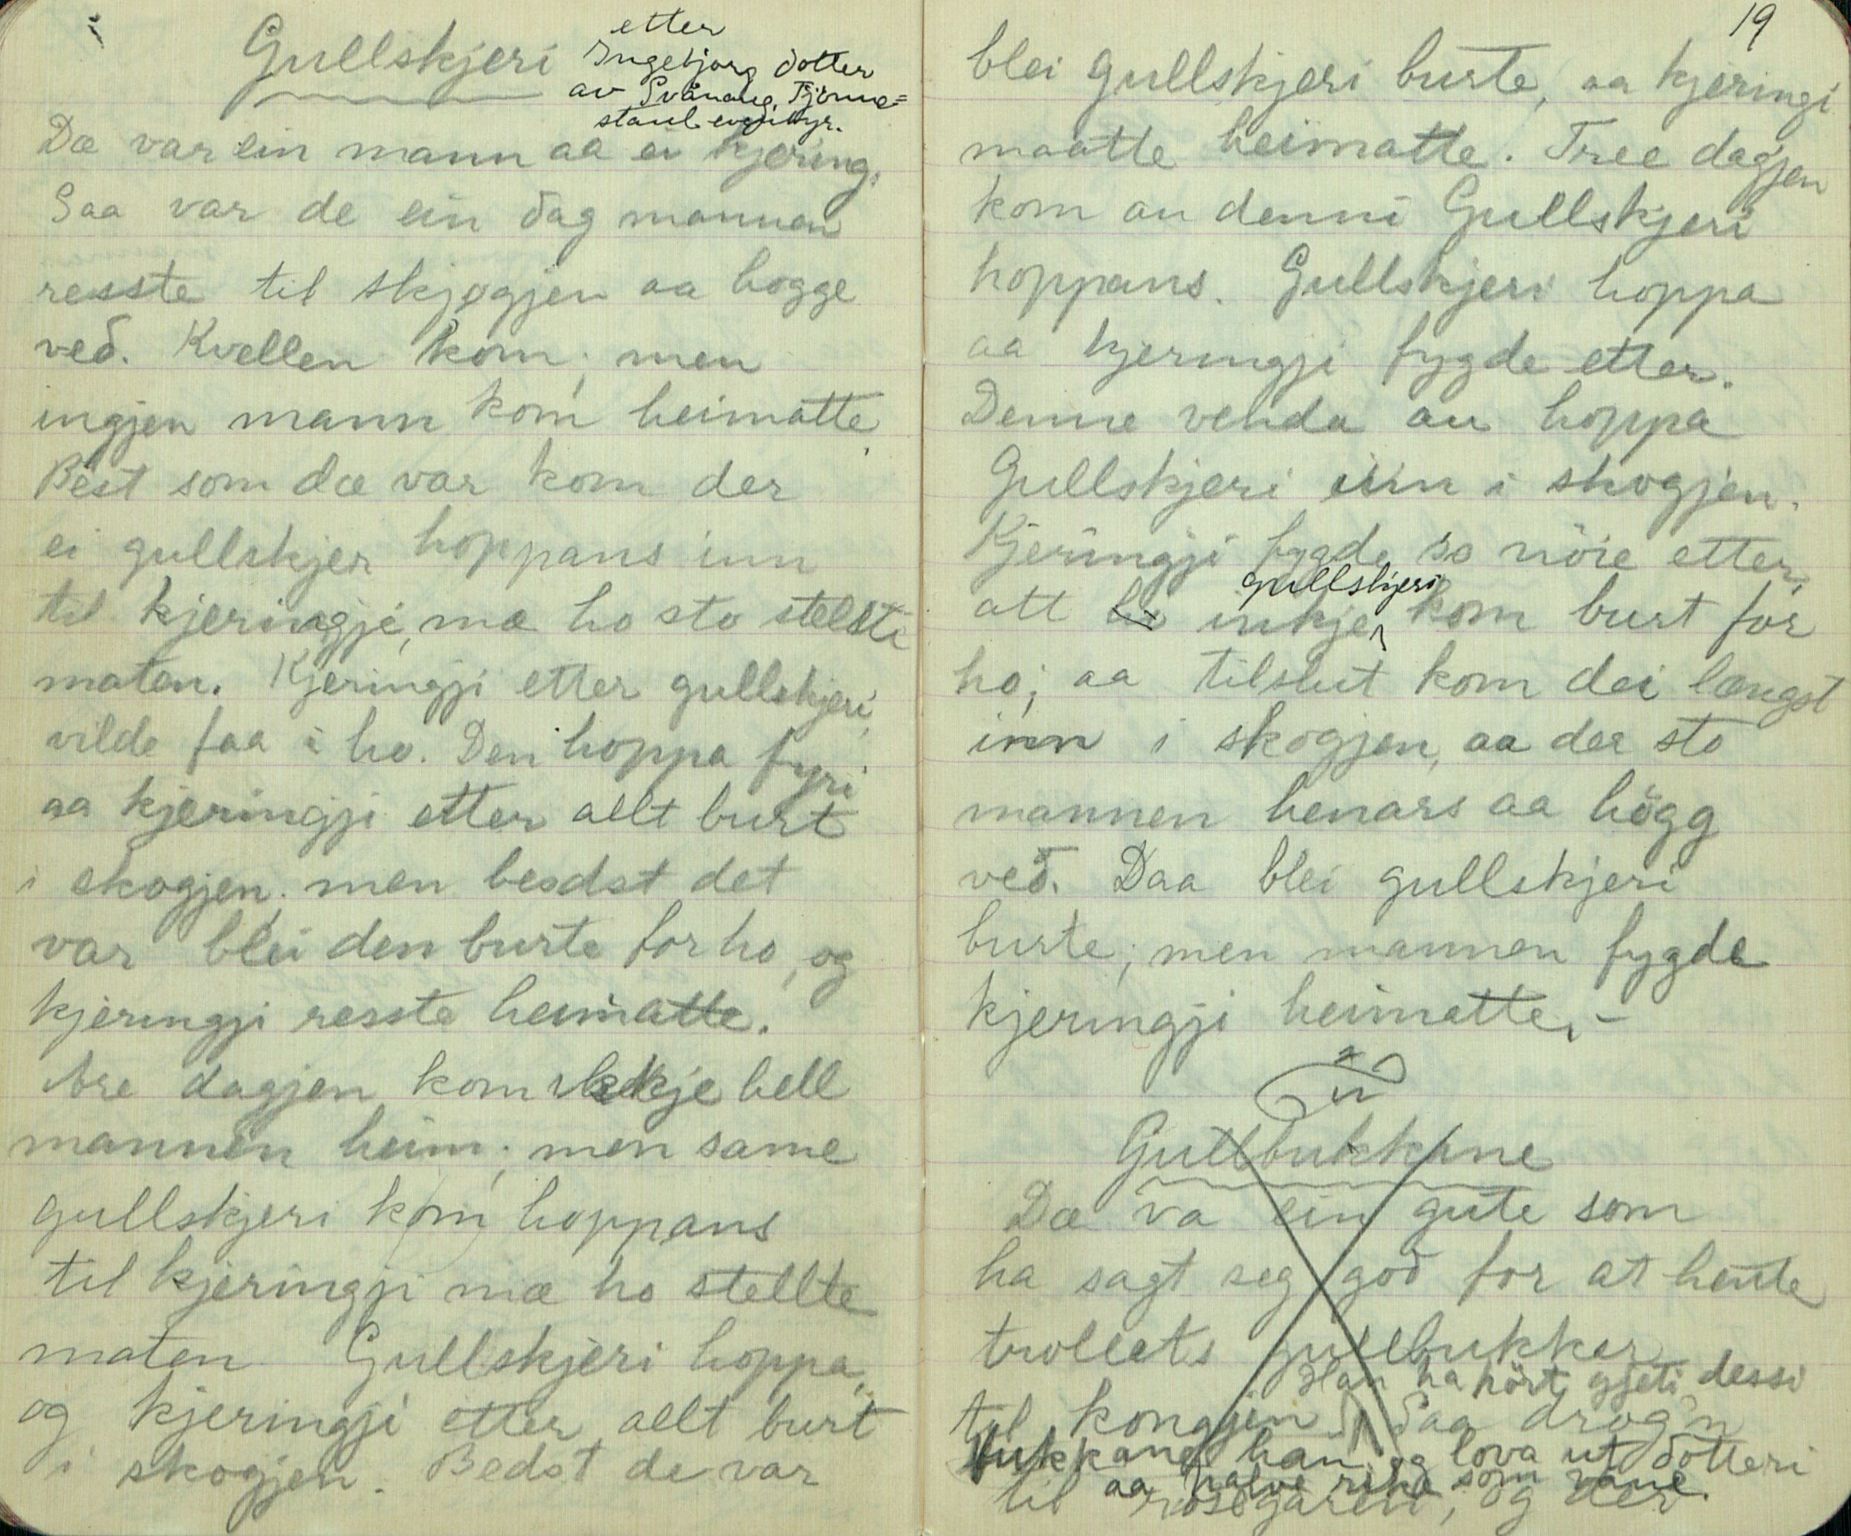 Gullskjeri
etter
Ingebjorg dotter
av Svanaug, Tjønne=
staul. eventyr.
Dæ var ein mann aa ei kjering.
Saa var de ein dag mannen
resste til skjogjen aa hogge
ved. Kvellen kom; men
ingjen mann kom heimatte,
Best som dæ var kom der
ei gullskjer hoppans inn
til kjeringji, mæ ho sto stellte
maten. Kjeringji etter gullskjeri,
vilde faa i ho. Den hoppa fyri
aa kjeringji etter allt burt
i skogjen; men besdst det
var blei den burte for ho, og
kjeringji resste heimatte.
Are dagjen kom ikkje hell
mannen heim; men same
gullskjeri kom hoppans
til kjeringji mæ ho stellte
maten Gullskjeri hoppa,
og kjeringji etter allt burt
i skogjen. Bedst de var
19
blei gullskjeri burte, aa kjeringi
maatte heimatte. Tree dagjen
kom au denni Gullskjeri
hoppans. Gullskjeri hoppa
aa kjeringji fygde etter.
Denne venda au hoppa
Gullskjeri inn i skogjen.
Kjeringji fygde so nöie etter,
att ho inkje gullskjeri kom burt for
ho; aa tilslut kom dei længst
inn i skogjen, aa der sto
mannen henars aa högg
ved. Daa blei gullskjeri
burte; men mannen fygde
kjeringji heimatte. –
Gullbukkane
Dæ va ein gute som
ha sagt seg god for at hente
trollets gullbukkar
Han ha hört gjeti dessi
til kongjen Saa drog'n
bukkane han og lova ut dotteri
aa halve rike som vane.
til rosegaren, og der